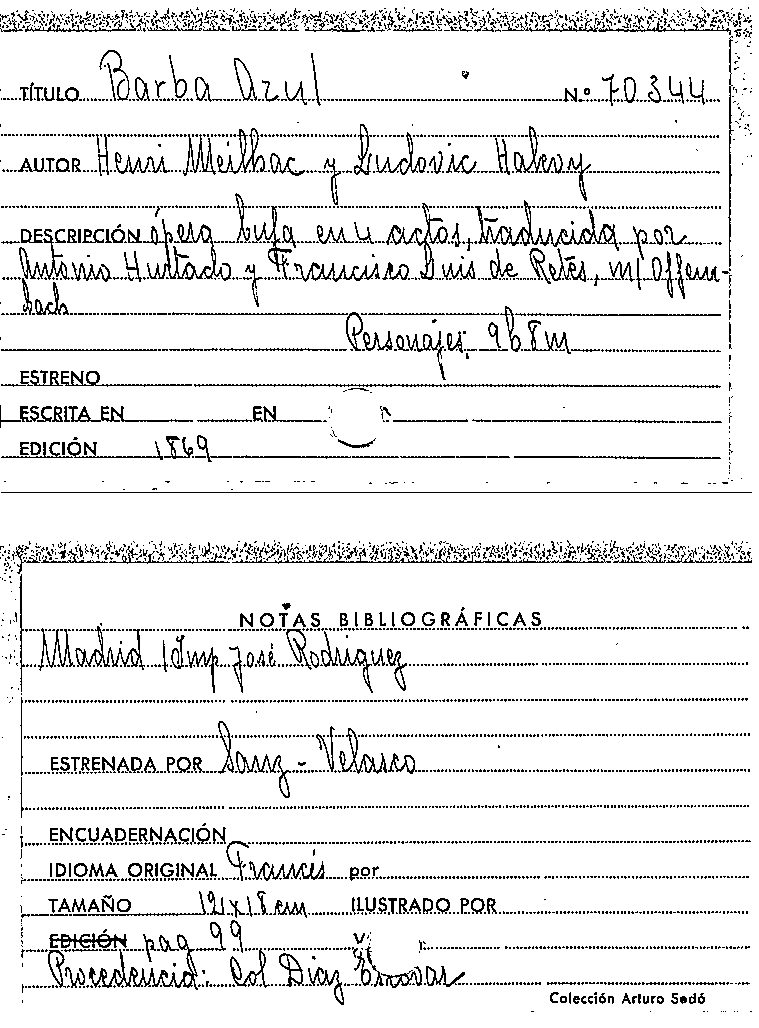 TÍTULO Barba Azul Nº 70344
AUTOR Henri Meilhac y Ludovic Halevy
DESCRIPCIÓN ópera bufa en 4 actos, traducida por
Antonio Hurtado y Francisco Luis de Retés, m/ Offem-
bach
Personajes: 9h 8m
ESTRENO
ESCRITA EN EN
EDICIÓN 1869
NOTAS BIBLIOGRÁFICAS
Madrid / Imp José Rodriguez
ESTRENADA POR Sanz - Velasco
ENCUADERNACIÓN
IDIOMA ORIGINAL Francés por
TAMAÑO 12 x 18 cm ILUSTRADO POR
EDICIÓN pag 99
Procedencia: Col Diaz Escovar
Colección Arturo Sedó